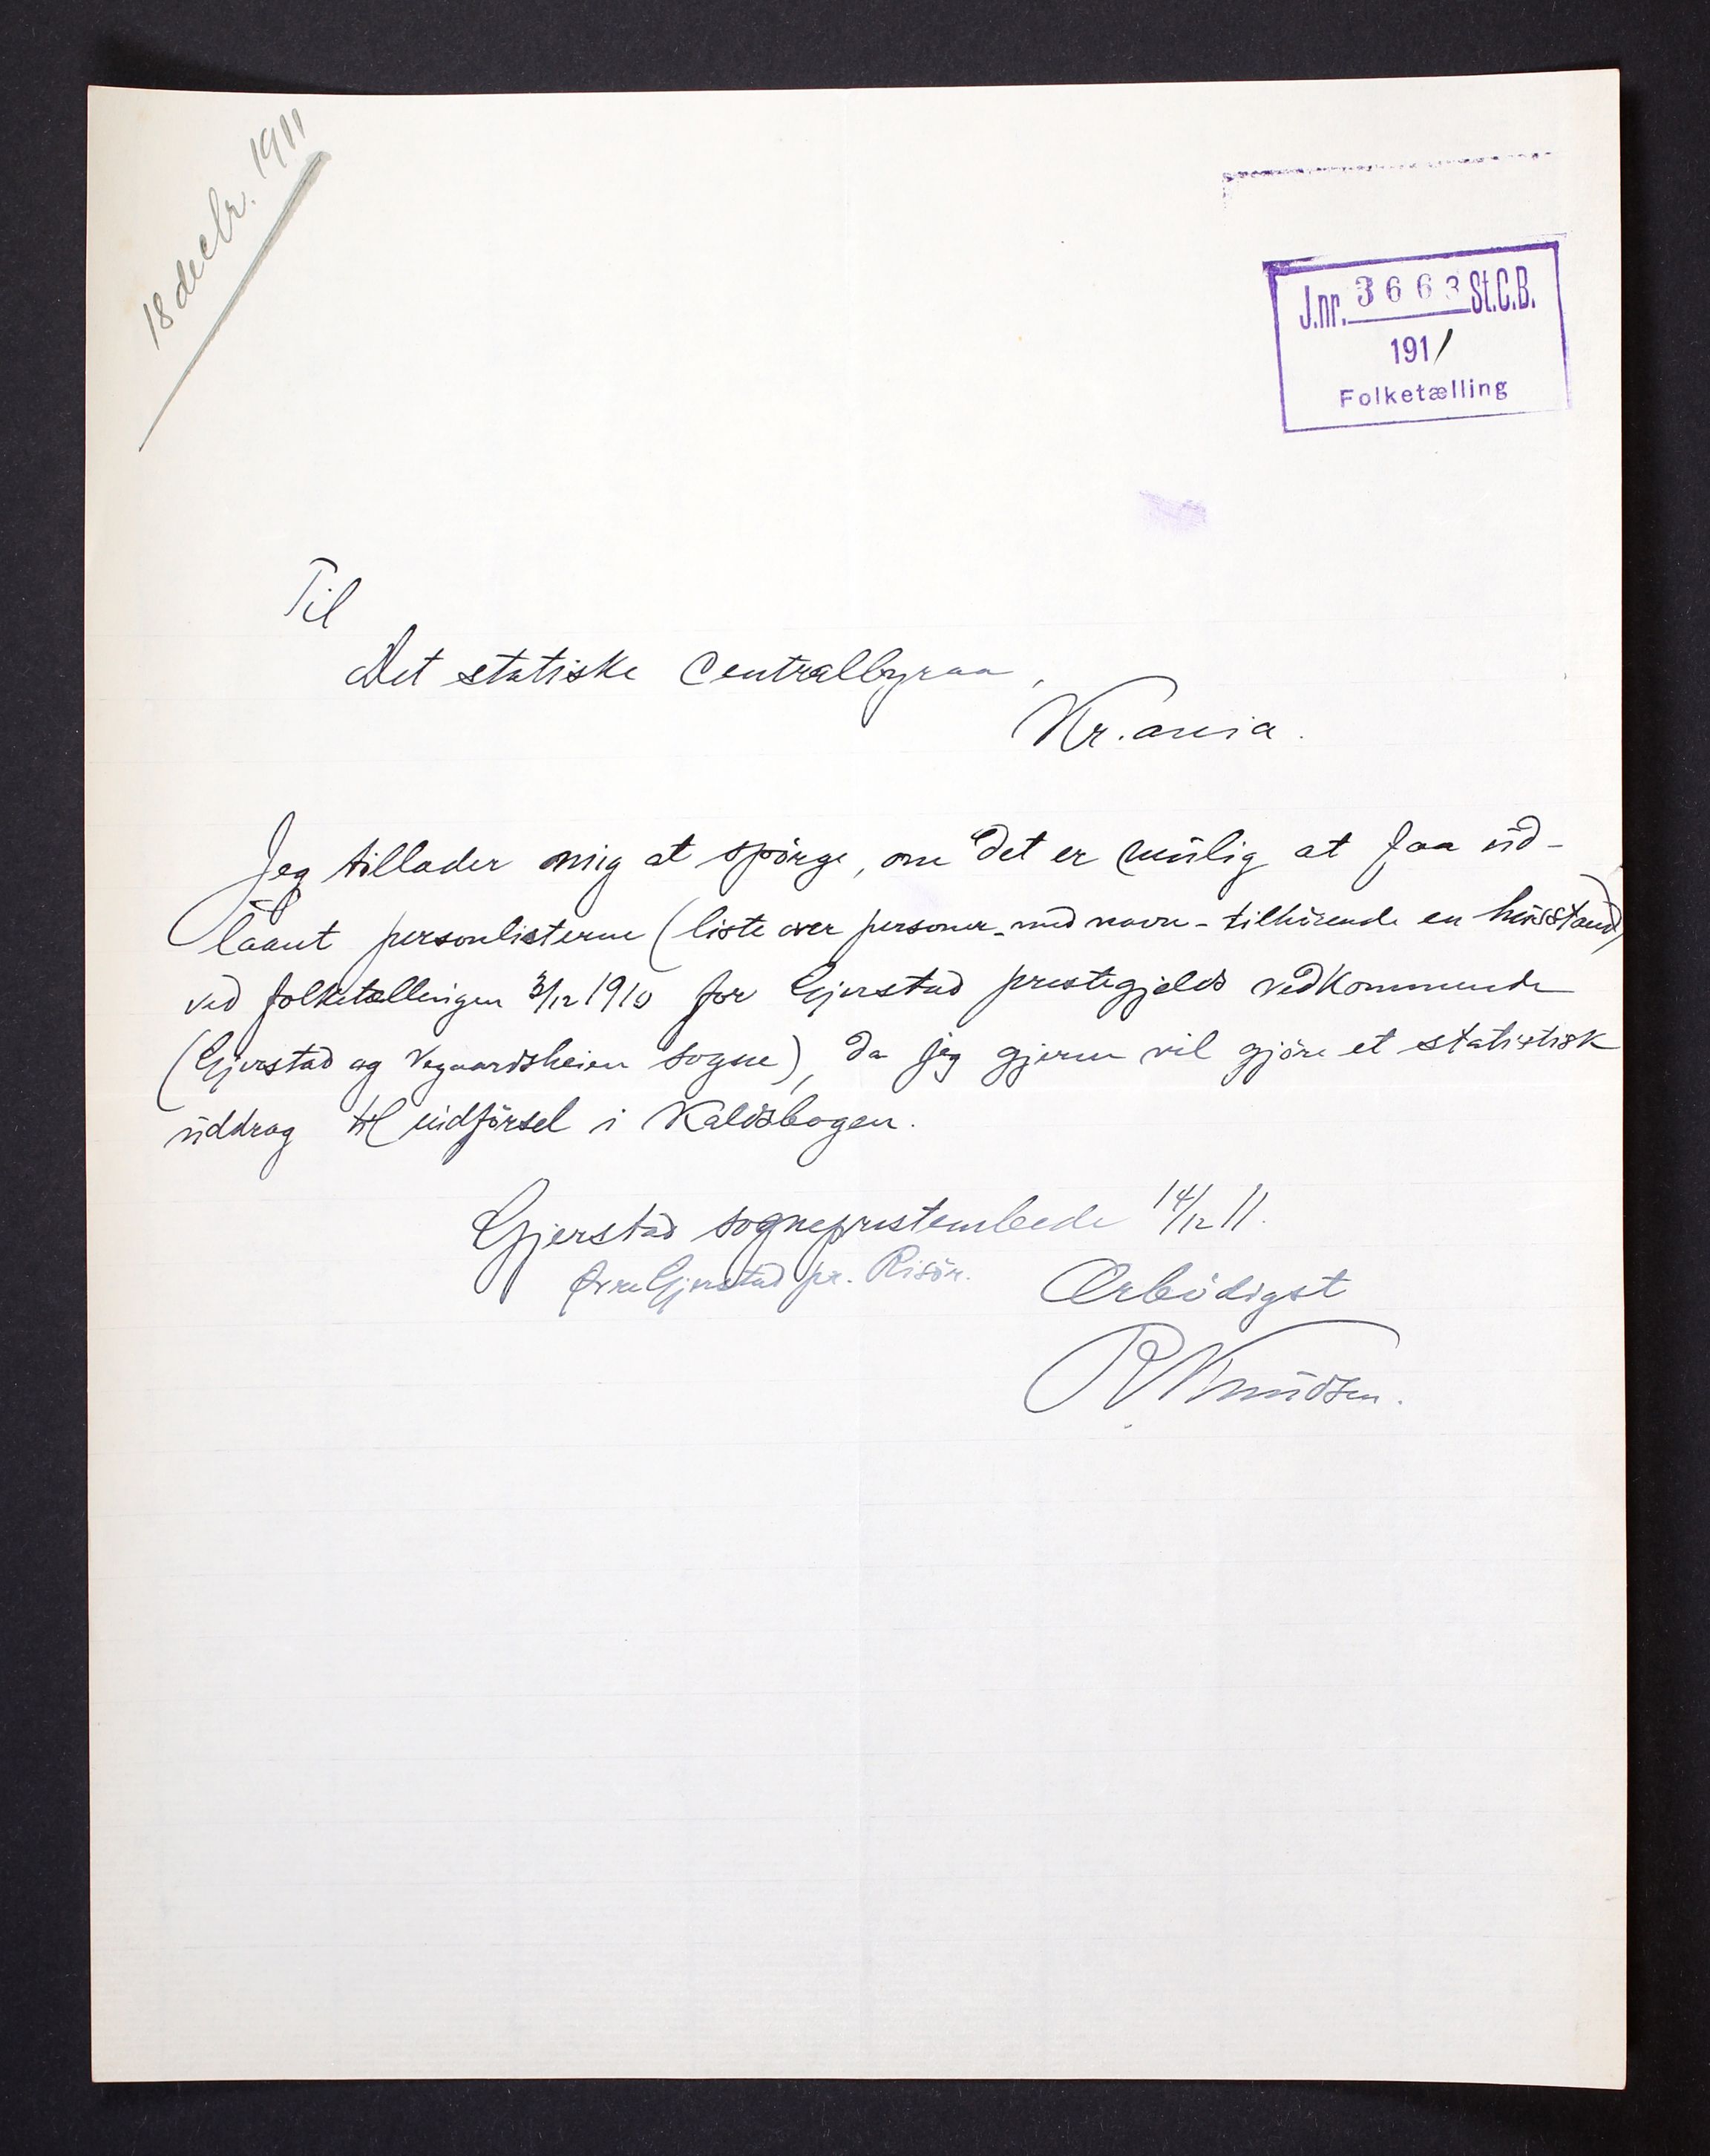 18 decbr. 1911
J.nr. 3663 St.C.B.
1911
Folketælling
Til
Det statiske Centralbyraa,
Kr.ania.
Jeg tillader mig at spörge, om det er mulig at faa ud-
laant personlisterne (liste over personer - med navn - tilhörende en husstand)
ved folketællingen 3/12 1910 for Gjerstad prestegjelds vedkommende
(Gjerstad og Vegaardsheien sogne), da jeg gjerne vil gjöre et statistisk
uddrag til indförsel i Kaldsbogen.
Gjerstad sogneprestembede 14/12 11.
Øvre Gjerstad pr. Risör.
Ærbödigst
R Knudsen.